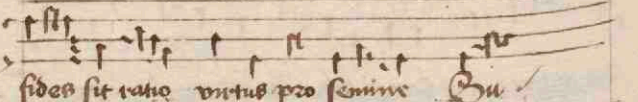 fides sit ratio virtus pro semine Si